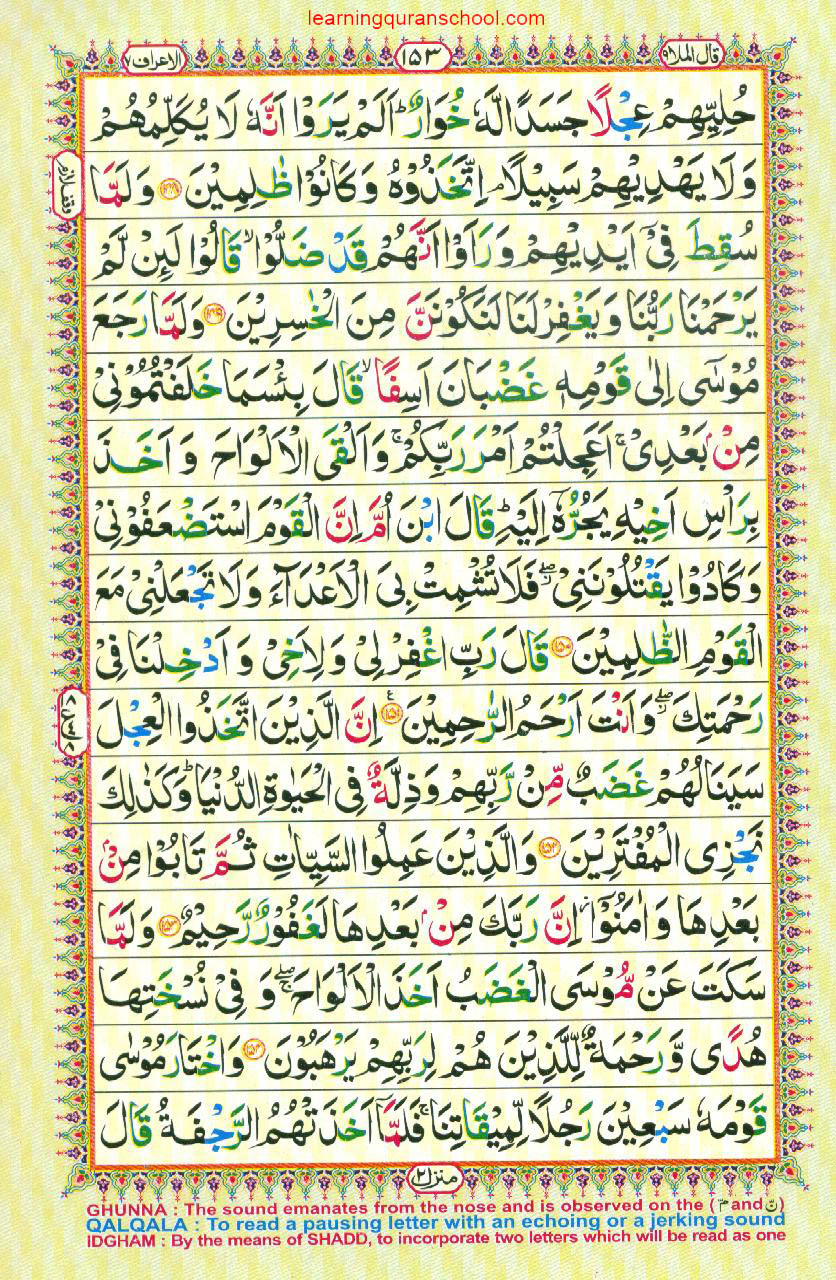 learningquranschool.com
قال الملا ٩
١٥٣
الاعراف ٧
حُلِيِّهِمْ عِجْلًا جَسَدًا لَّهٗ خُوَارٌ ؕ اَلَمْ يَرَوْا اَنَّهٗ لَا يُكَلِّمُهُمْ
وَلَا يَهْدِيْهِمْ سَبِيْلًا ۘ اِتَّخَذُوْهُ وَكَانُوْا ظٰلِمِيْنَ ﴿۱۴۸﴾ وَلَمَّا
سُقِطَ فِىْۤ اَيْدِيْهِمْ وَرَاَوْا اَنَّهُمْ قَدْ ضَلُّوْا ۙ قَالُوْا لَئِنْ لَّمْ
يَرْحَمْنَا رَبُّنَا وَيَغْفِرْ لَنَا لَنَكُوْنَنَّ مِنَ الْخٰسِرِيْنَ ﴿۱۴۹﴾ وَلَمَّا رَجَعَ
مُوْسٰٓى اِلٰى قَوْمِهٖ غَضْبَانَ اَسِفًا ۙ قَالَ بِئْسَمَا خَلَفْتُمُوْنِىْ
مِنْۢ بَعْدِىْ ۚ اَعَجِلْتُمْ اَمْرَ رَبِّكُمْ ۚ وَاَلْقَى الْاَلْوَاحَ وَاَخَذَ
بِرَاْسِ اَخِيْهِ يَجُرُّهٗۤ اِلَيْهِ ؕ قَالَ ابْنَ اُمَّ اِنَّ الْقَوْمَ اسْتَضْعَفُوْنِىْ
وَكَادُوْا يَقْتُلُوْنَنِىْ ۖ فَلَا تُشْمِتْ بِىَ الْاَعْدَآءَ وَلَا تَجْعَلْنِىْ مَعَ
الْقَوْمِ الظّٰلِمِيْنَ ﴿۱۵۰﴾ قَالَ رَبِّ اغْفِرْ لِىْ وَلِاَخِىْ وَاَدْخِلْنَا فِىْ
رَحْمَتِكَ ۖ وَاَنْتَ اَرْحَمُ الرّٰحِمِيْنَ ﴿۱۵۱﴾ اِنَّ الَّذِيْنَ اتَّخَذُوا الْعِجْلَ
سَيَنَالُهُمْ غَضَبٌ مِّنْ رَّبِّهِمْ وَذِلَّةٌ فِى الْحَيٰوةِ الدُّنْيَا ؕ وَكَذٰلِكَ
نَجْزِى الْمُفْتَرِيْنَ ﴿۱۵۲﴾ وَالَّذِيْنَ عَمِلُوا السَّيِّاٰتِ ثُمَّ تَابُوْا مِنْۢ
بَعْدِهَا وَاٰمَنُوْۤا ؗ اِنَّ رَبَّكَ مِنْۢ بَعْدِهَا لَغَفُوْرٌ رَّحِيْمٌ ﴿۱۵۳﴾ وَلَمَّا
سَكَتَ عَنْ مُّوْسَى الْغَضَبُ اَخَذَ الْاَلْوَاحَ ۖ وَفِىْ نُسْخَتِهَا
هُدًى وَّرَحْمَةٌ لِّلَّذِيْنَ هُمْ لِرَبِّهِمْ يَرْهَبُوْنَ ﴿۱۵۴﴾ وَاخْتَارَ مُوْسٰى
قَوْمَهٗ سَبْعِيْنَ رَجُلًا لِّمِيْقَاتِنَا ۚ فَلَمَّاۤ اَخَذَتْهُمُ الرَّجْفَةُ قَالَ
منزل ٢
GHUNNA : The sound emanates from the nose and is observed on the (مّ and نّ)
QALQALA : To read a pausing letter with an echoing or a jerking sound
IDGHAM : By the means of SHADD, to incorporate two letters which will be read as one